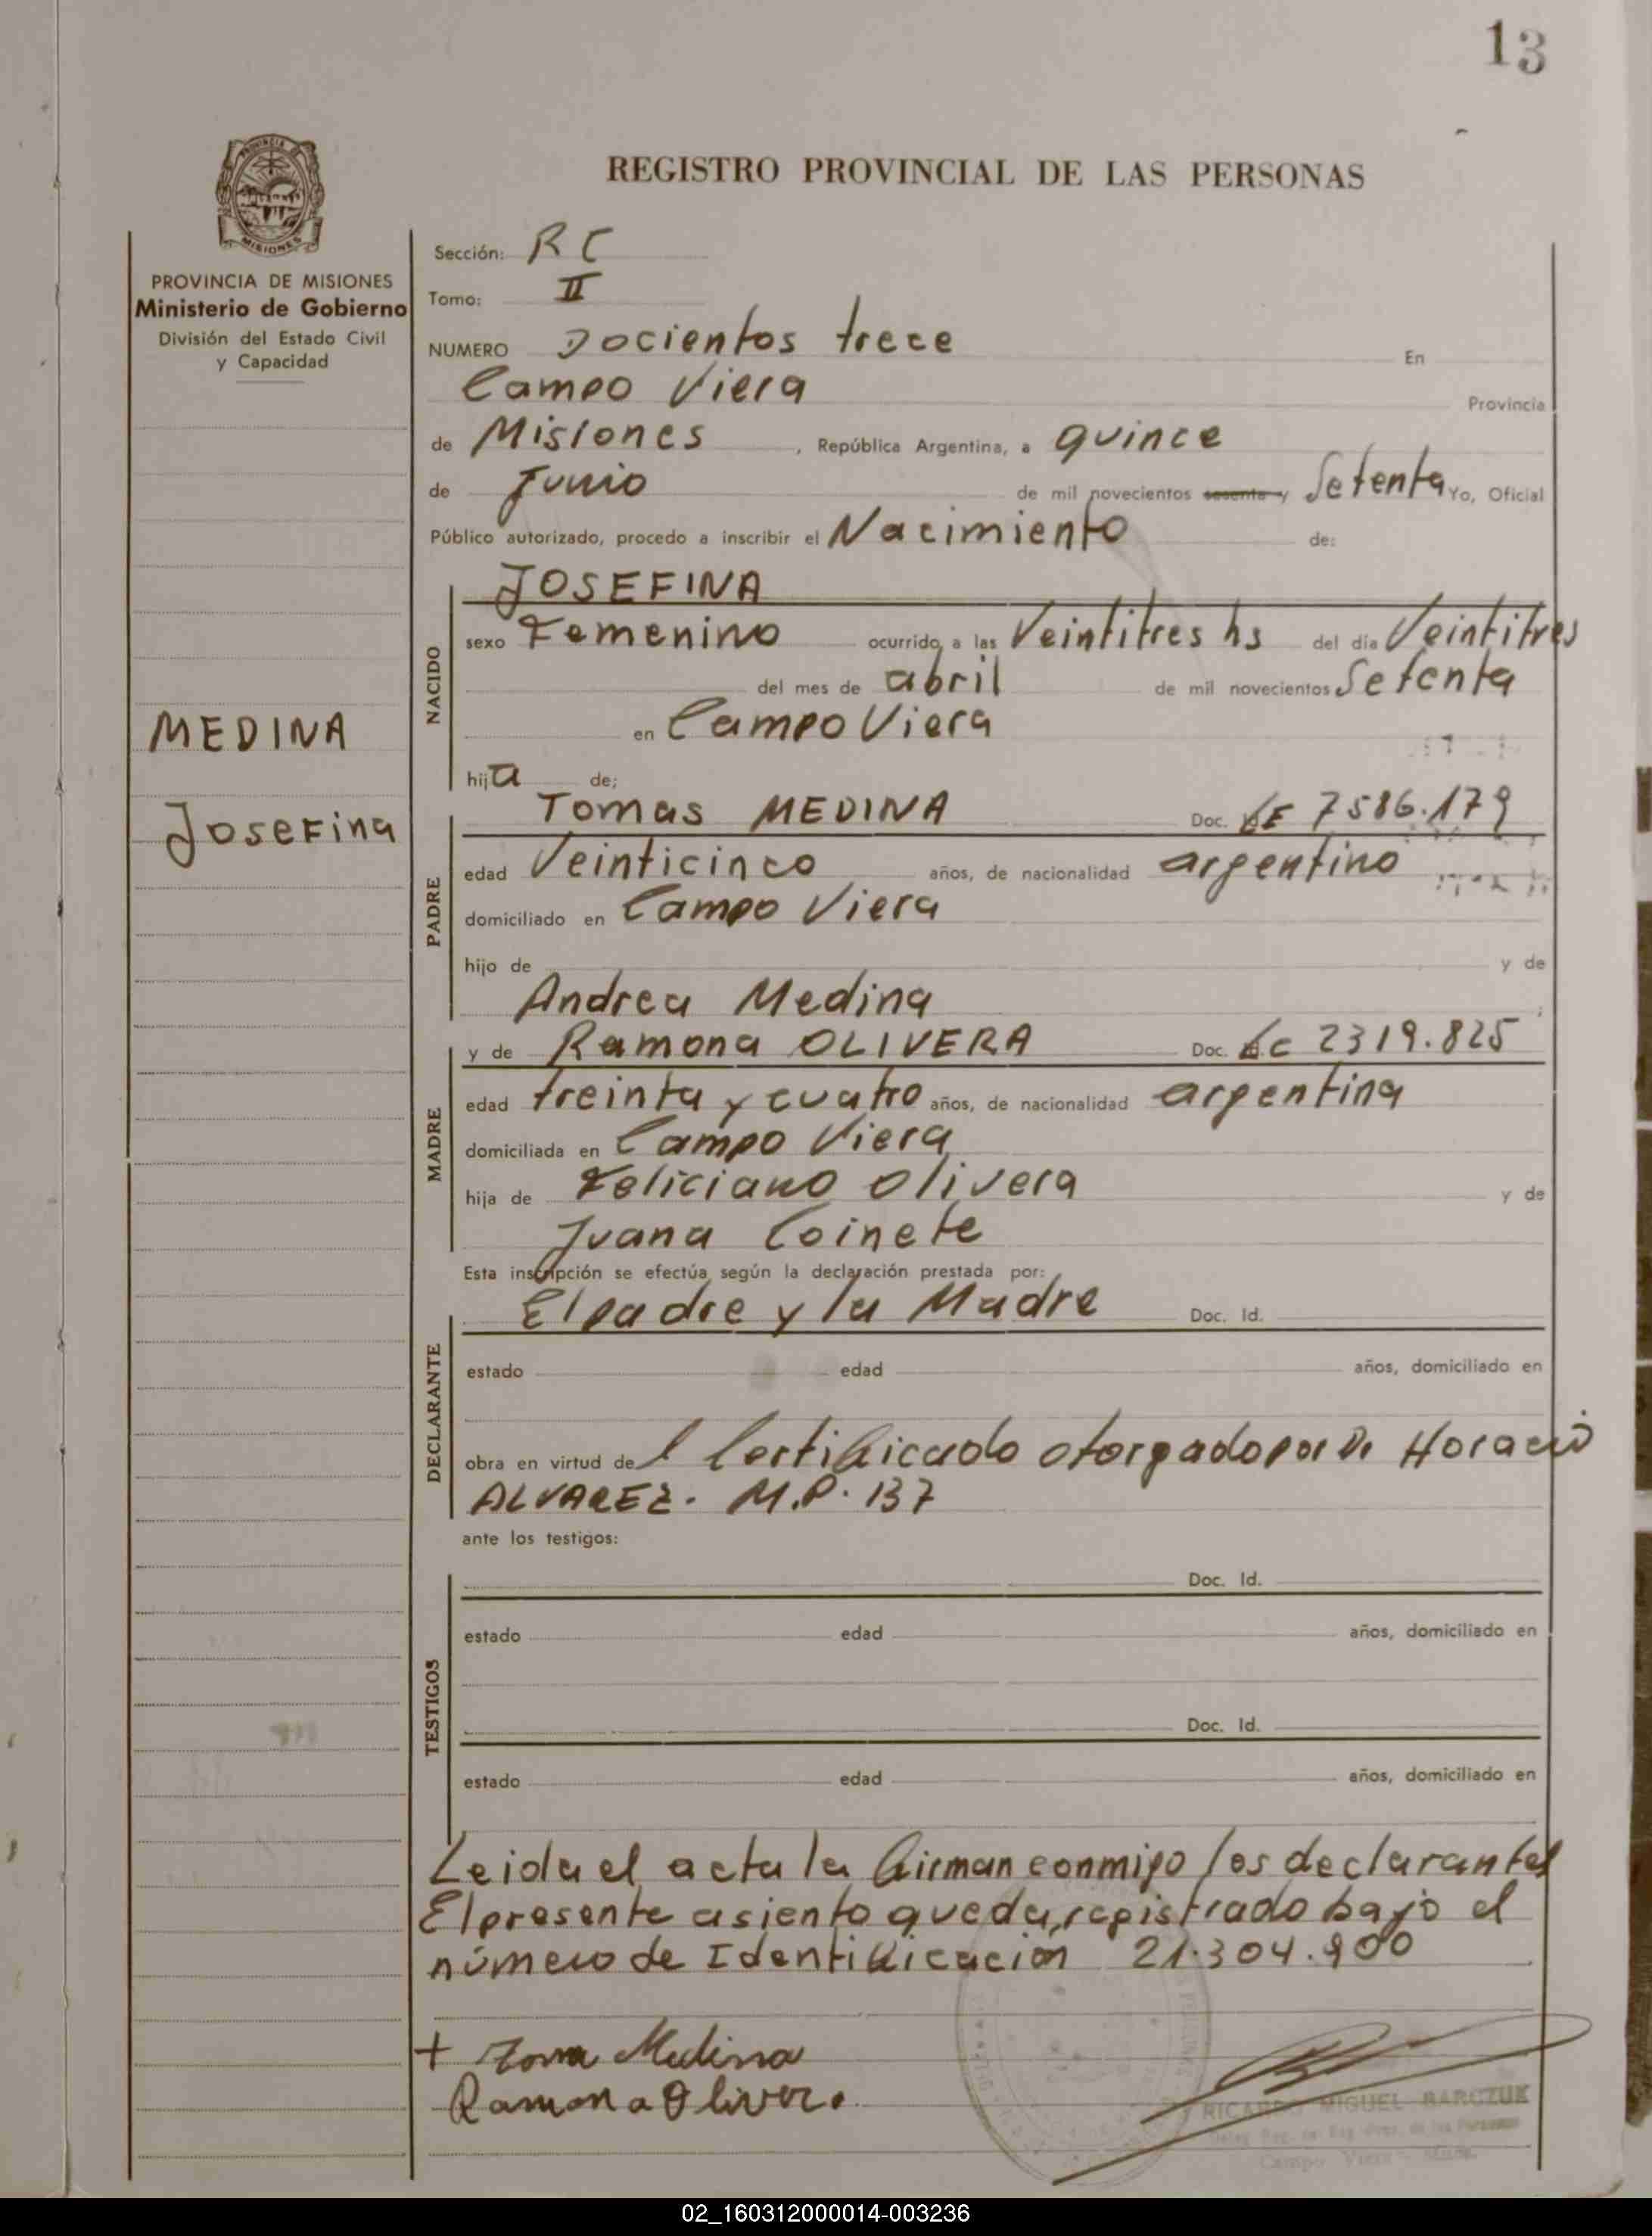 13
PROVINCIA DE
MISIONES
REGISTRO PROVINCIAL DE LAS PERSONAS
PROVINCIA DE MISIONES
Ministerio de Gobierno
División del Estado Civil
y Capacidad
MEDINA
Josefina
Sección: RC
Tomo: II
NUMERO Docientos trece En
Campo Viera Provincia
de Misiones, República Argentina, a quince
de Junio de mil novecientos sesenta y Setenta Yo, Oficial
Público autorizado, procedo a inscribir el Nacimiento de:
NACIDO
JOSEFINA
sexo Femenino ocurrido a las Veintitres hs del día Veintitres
del mes de abril de mil novecientos Setenta
en Campo Viera
hija de;
PADRE
Tomas MEDINA Doc. LE 7586.179
edad Veinticinco años, de nacionalidad argentino
domiciliado en Campo Viera
hijo de y de
Andrea Medina
MADRE
y de Ramona OLIVERA Doc. LC 2319.825
edad treinta y cuatro años, de nacionalidad argentina
domiciliada en Campo Viera
hija de Feliciano Olivera y de
Juana Coinete
Esta inscripción se efectúa según la declaración prestada por:
DECLARANTE
El padre y la Madre Doc. Id.
estado edad años, domiciliado en
obra en virtud del Certificado otorgado por Dr Horacio
ALVAREZ. M.P. 137
ante los testigos:
TESTIGOS
Doc. Id.
estado edad años, domiciliado en
Doc. Id.
estado edad años, domiciliado en
Leida el acta la firman conmigo los declarantes
El presente asiento queda registrado bajo el
número de Identificación 21.304.900
+ Toma Medina
Ramona Olivera
RICARDO MIGUEL BARCZUK
Campo Viera
02_160312000014-003236